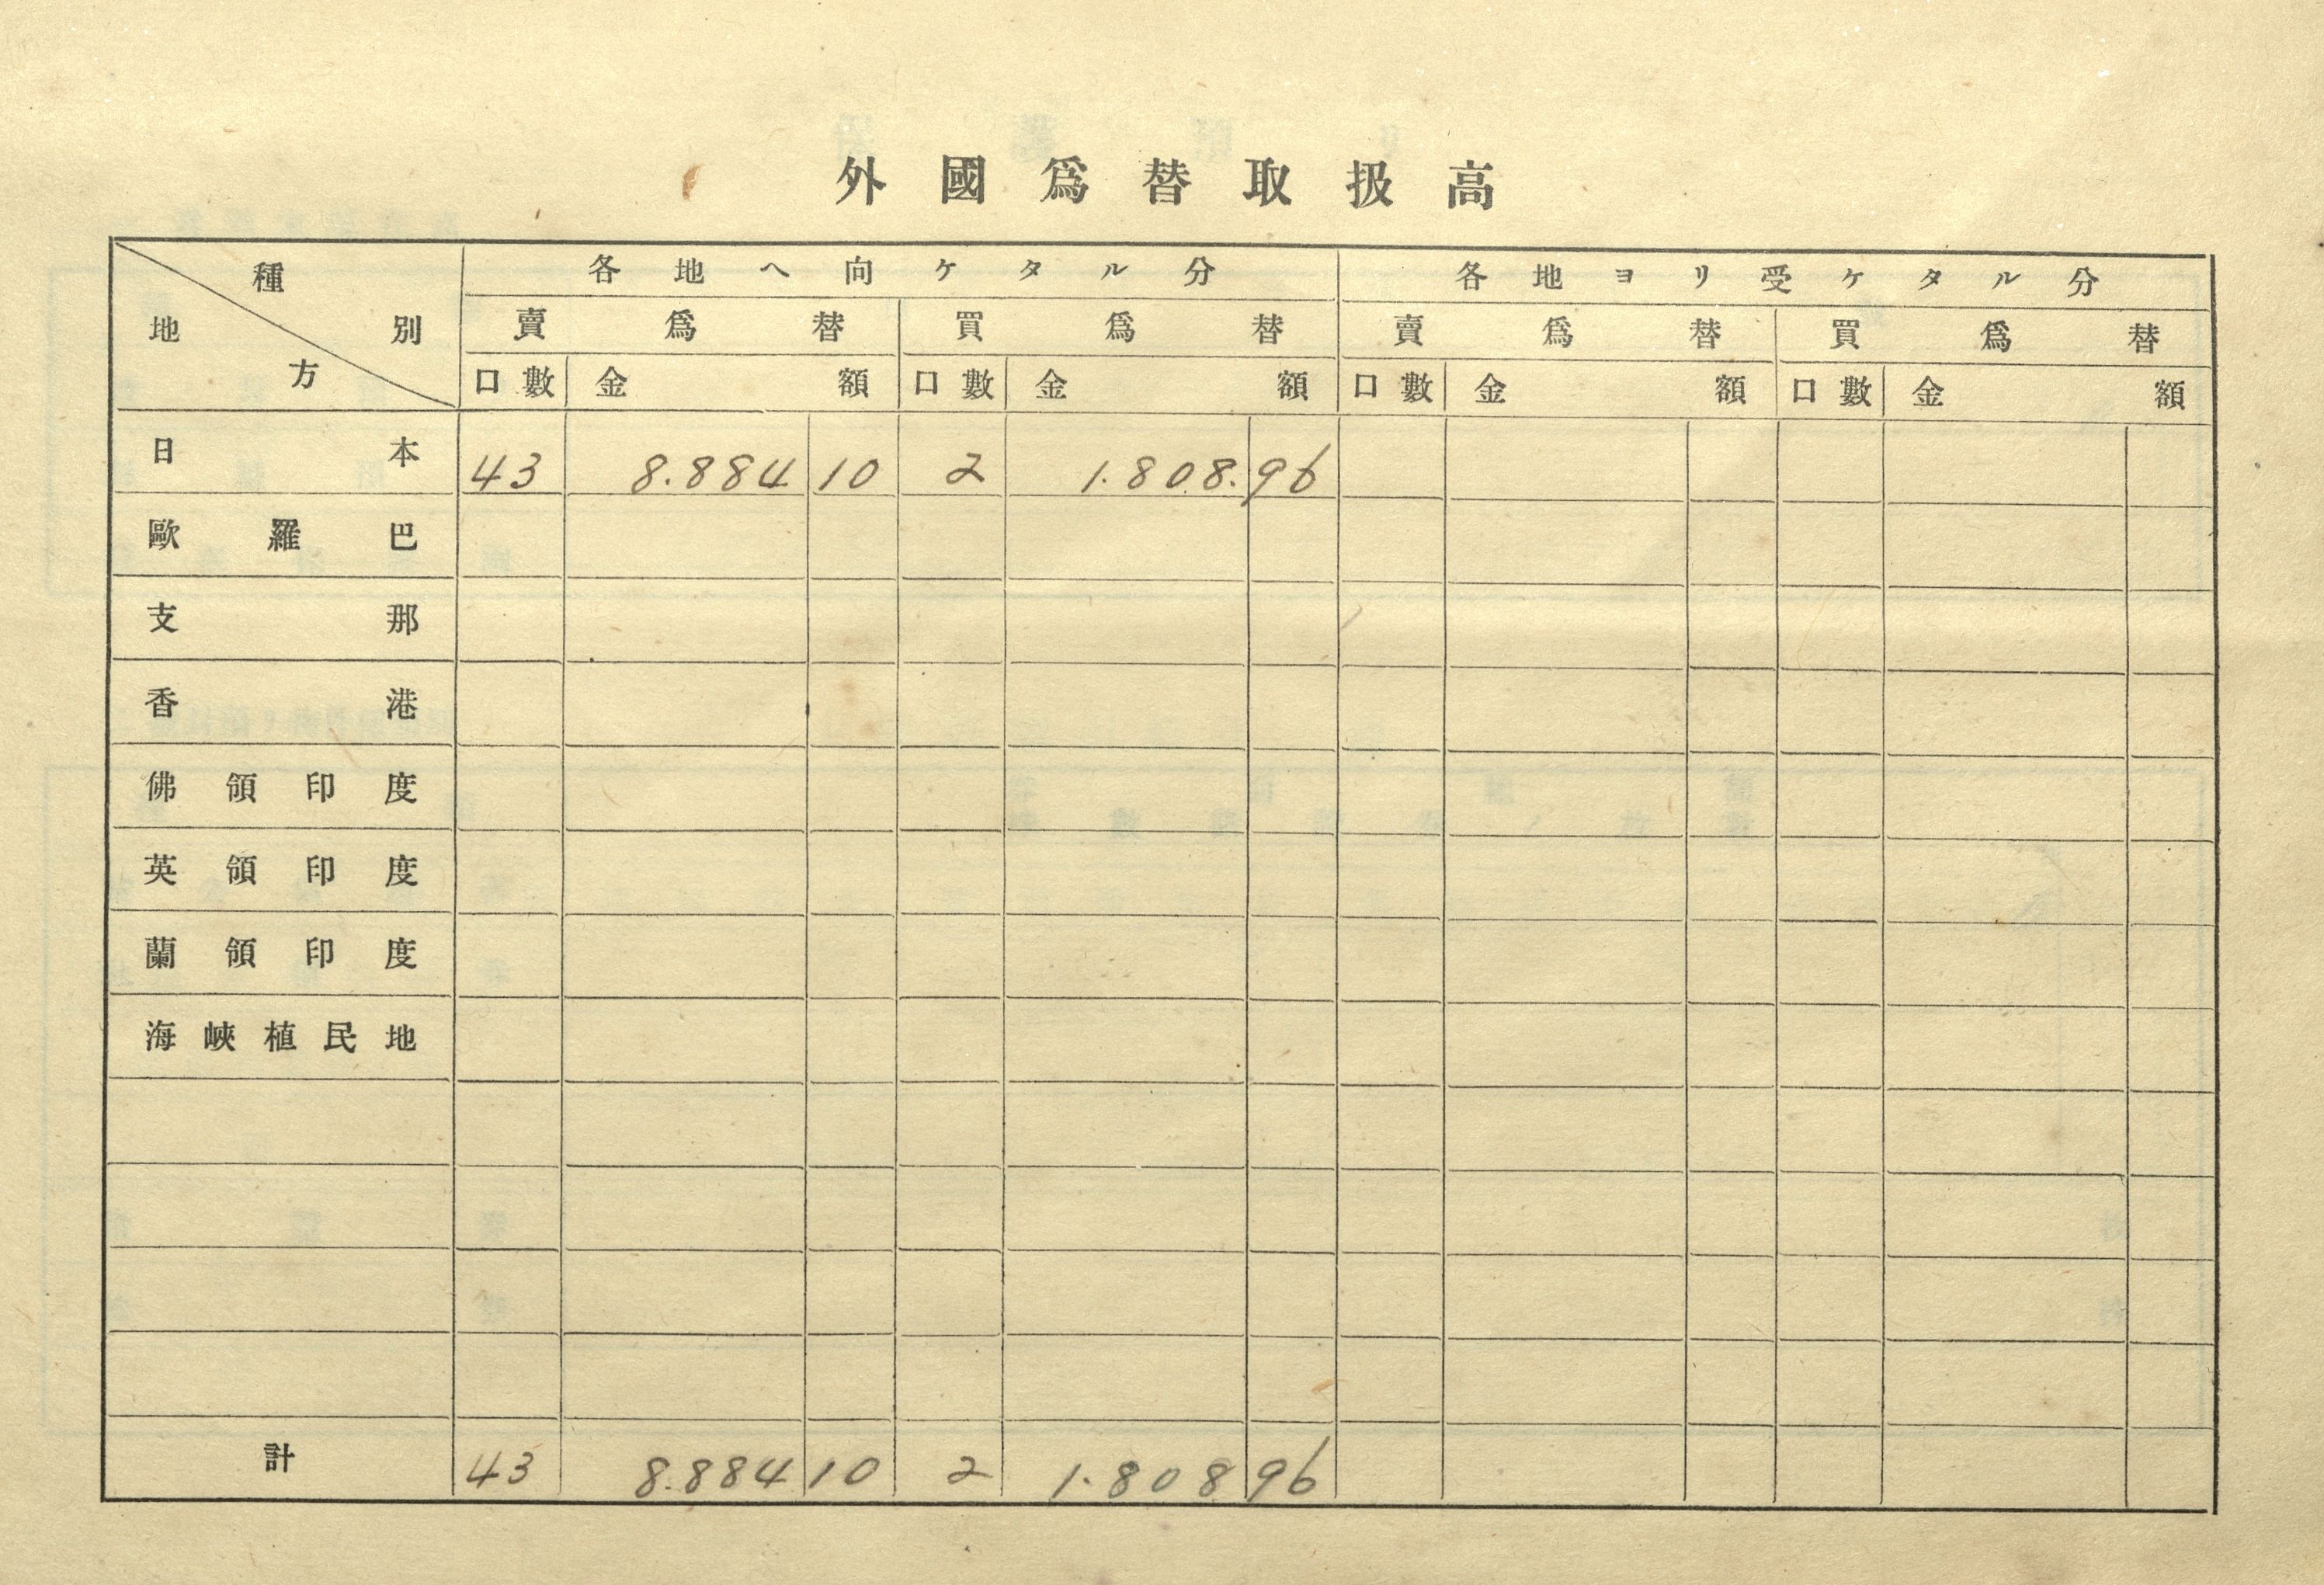 外國爲替取扱高
種別 地方 各地ヘ向ケタル分 各地ヨリ受ケタル分
賣爲替 買爲替 賣爲替 買爲替
口數 金額 口數 金額 口數 金額 口數 金額
日本 43 8.884 10 2 1.808.96
歐羅巴
支那
香港
佛領印度
英領印度
蘭領印度
海峽植民地
計 43 8.884 10 2 1.808 96